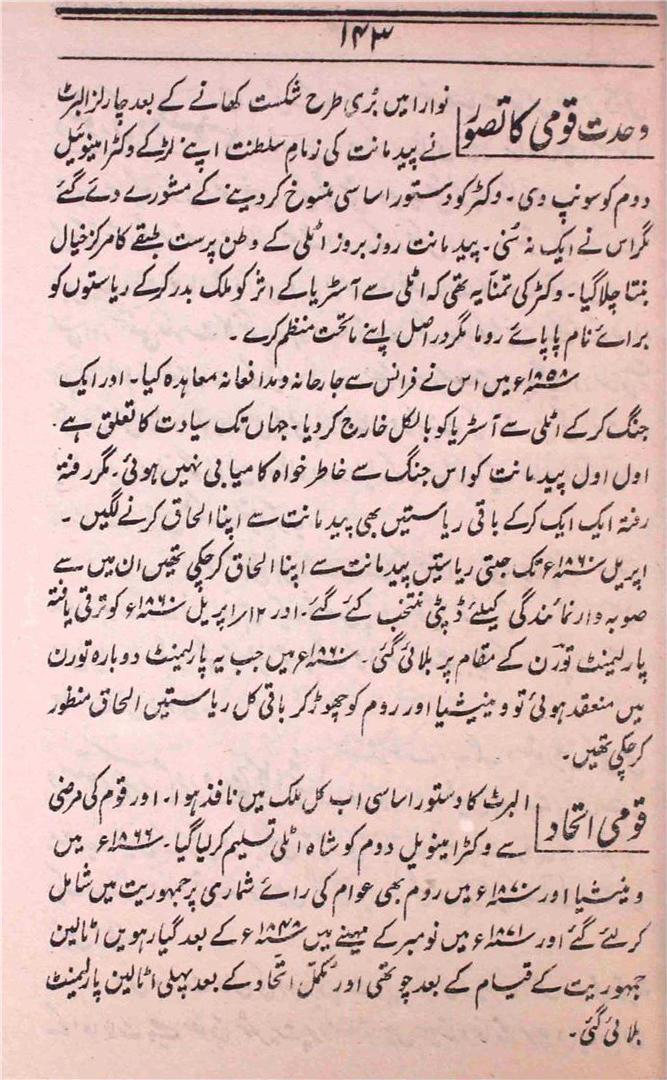 ۱۴۳
وحدت قومی کا تصور
نوارا میں بُری طرح شکست کھانے کے بعد چارلز البرٹ
نے پیدمانت کی زمامِ سلطنت اپنے لڑکے وکٹر امینوئیل
دوم کو سونپ دی۔ وکٹر کو دستور اساسی منسوخ کر دینے کے مشورے دئے گئے
مگر اس نے ایک نہ سُنی۔ پیدمانت روز بروز اٹلی کے وطن پرست طبقے کا مرکز خیال
بنتا چلا گیا۔ وکٹر کی تمنا یہ تھی کہ اٹلی سے آسٹریا کے اثر کو ملک بدر کرکے ریاستوں کو
برائے نام پاپائے روما مگر دراصل اپنے ماتحت منظم کرے۔
۱۸۵۸ء میں اس نے فرانس سے جارحانہ ومدافعانہ معاہدہ کیا۔ اور ایک
جنگ کرکے اٹلی سے آسٹریا کو بالکل خارج کر دیا۔ جہاں تک سیادت کا تعلق ہے۔
اول اول پیدمانت کو اس جنگ سے خاطر خواہ کامیابی نہیں ہوئی۔ مگر رفتہ
رفتہ ایک ایک کرکے باقی ریاستیں بھی پیدمانت سے اپنا الحاق کرنے لگیں۔
اپریل ۱۸۶۰ء تک جتنی ریاستیں پیدمانت سے اپنا الحاق کر چکی تھیں ان میں سے
صوبہ وار نمائندگی کیلئے ڈپٹی منتخب کئے گئے۔ اور ۱۲ اپریل ۱۸۶۰ء کو ترقی یافتہ
پارلیمنٹ تورن کے مقام پر بلائی گئی۔ ۱۸۶۰ء میں جب یہ پارلیمنٹ دوبارہ تورن
میں منعقد ہوئی تو وینیشیا اور روم کو چھوڑ کر باقی کل ریاستیں الحاق منظور
کر چکی تھیں۔
قومی اتحاد
البرٹ کا دستور اساسی اب کل ملک میں نافذ ہوا۔ اور قوم کی مرضی
سے وکٹر امینویل دوم کو شاہ اٹلی تسلیم کر لیا گیا۔ ۱۸۶۶ء میں
وینیشیا اور ۱۸۷۰ء میں روم بھی عوام کی رائے شماری پر جمہوریت میں شامل
کرلئے گئے اور ۱۸۷۱ء میں نومبر کے مہینے میں ۱۸۴۸ء کے بعد گیارہویں اٹالین
جمہوریت کے قیام کے بعد چوتھی اور مکمل اتحاد کے بعد پہلی اٹالین پارلیمنٹ
بلائی گئی۔